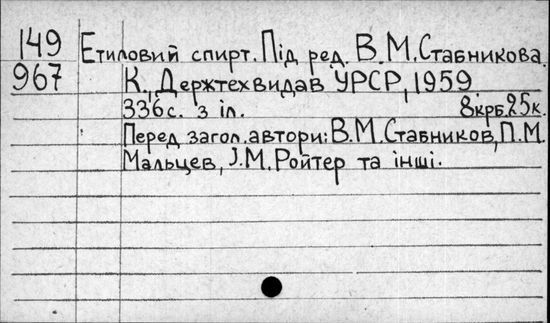 149 Етиловий спирт. Під ред. В.М.Стабникова.
967 К., Держтехвидав УРСР, 1959
336с. з іл. 8крб.25к.
Перед загол. автори: В.М.Стабников, П.М.
Мальцев, І.М.Ройтер та інші.